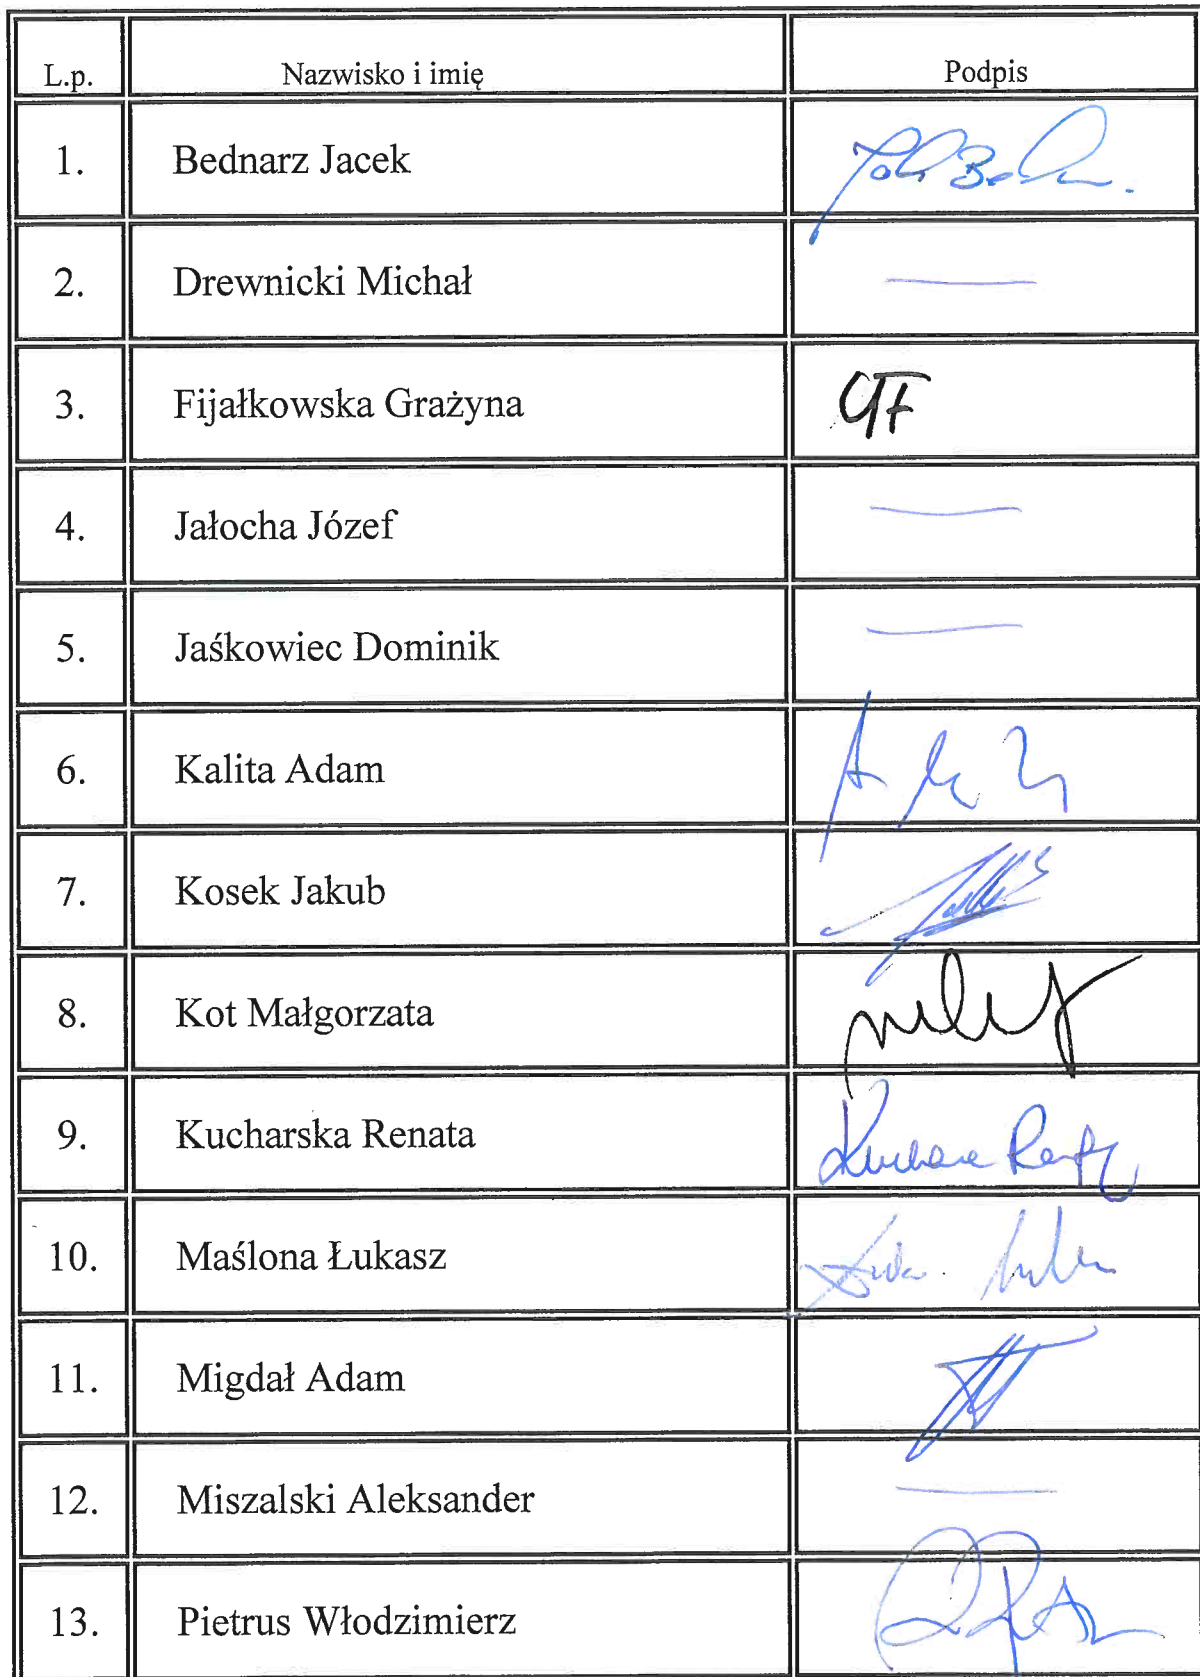 L.p. Nazwisko i imię Podpis
1. Bednarz Jacek
2. Drewnicki Michał —
3. Fijałkowska Grażyna GF
4. Jałocha Józef —
5. Jaśkowiec Dominik —
6. Kalita Adam
7. Kosek Jakub
8. Kot Małgorzata
9. Kucharska Renata
10. Maślona Łukasz
11. Migdał Adam
12. Miszalski Aleksander —
13. Pietrus Włodzimierz